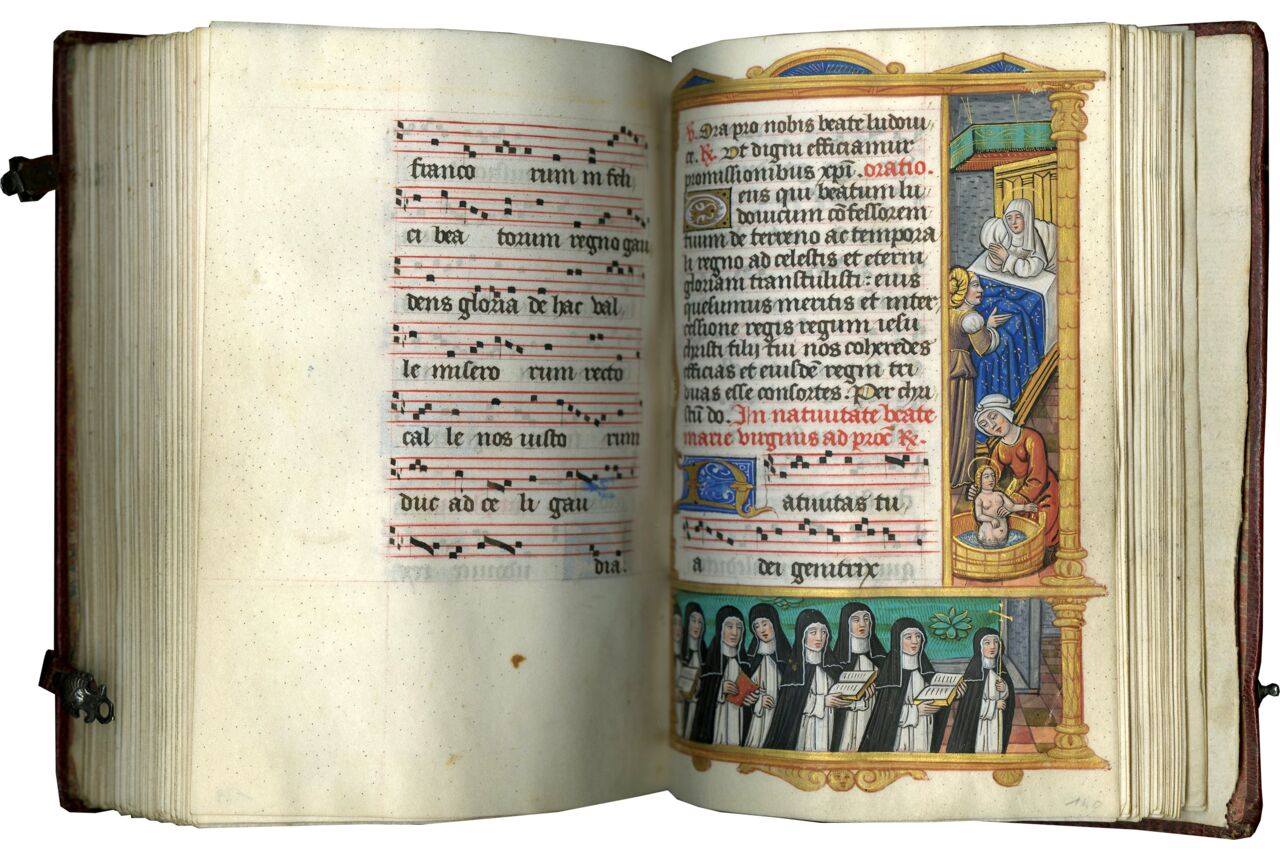 franco rum in feli
ci bea torum regno gau
dens gloria de hac val
le misero rum recto
cal le nos iusto rum
duc ad ce li gau
dia.
℣. Ora pro nobis beate ludoui
ce. ℟. Ut digni efficiamur
promissionibus xpi. oratio.
Deus qui beatum lu
douicum cōfessorem
tuum de terreno ac tempora
li regno ad celestis et eterni
gloriam transtulisti: eius
quesumus meritis et inter
cessione regis regum iesu
christi filij tui nos coheredes
efficias et eiusdē regni tri
buas esse consortes. Per chri
stū do. In natiuitate beate
marie virginis ad procē ℟.
Natiuitas tu
a dei genitrix
140